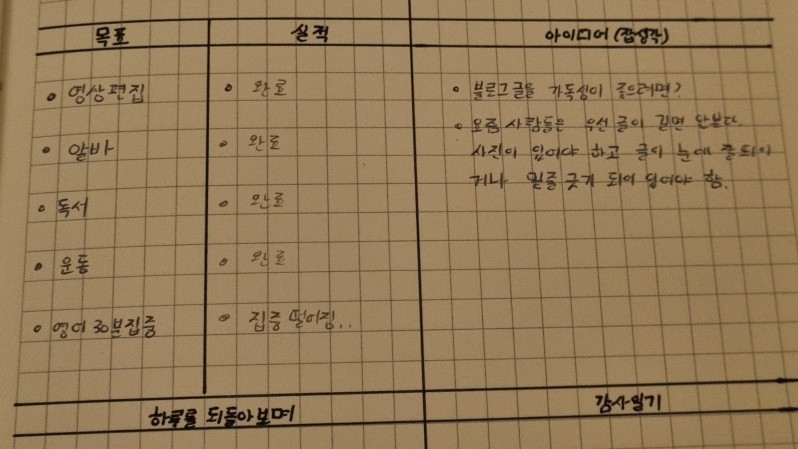 목표
실적
아이디어 (잡생각)
• 영상편집
• 완료
• 알바
• 완료
• 독서
• 완료
• 운동
• 완료
• 영어 30분집중
• 집중 떨어짐..
• 블로그 글을 가독성이 좋으려면?
• 요즘 사람들은 우선 글이 길면 안본다.
사진이 있어야 하고 글이 눈에 좀 띄이
거나 밑줄 긋기 되어 있어야 함.
하루를 되돌아보며
감사일기